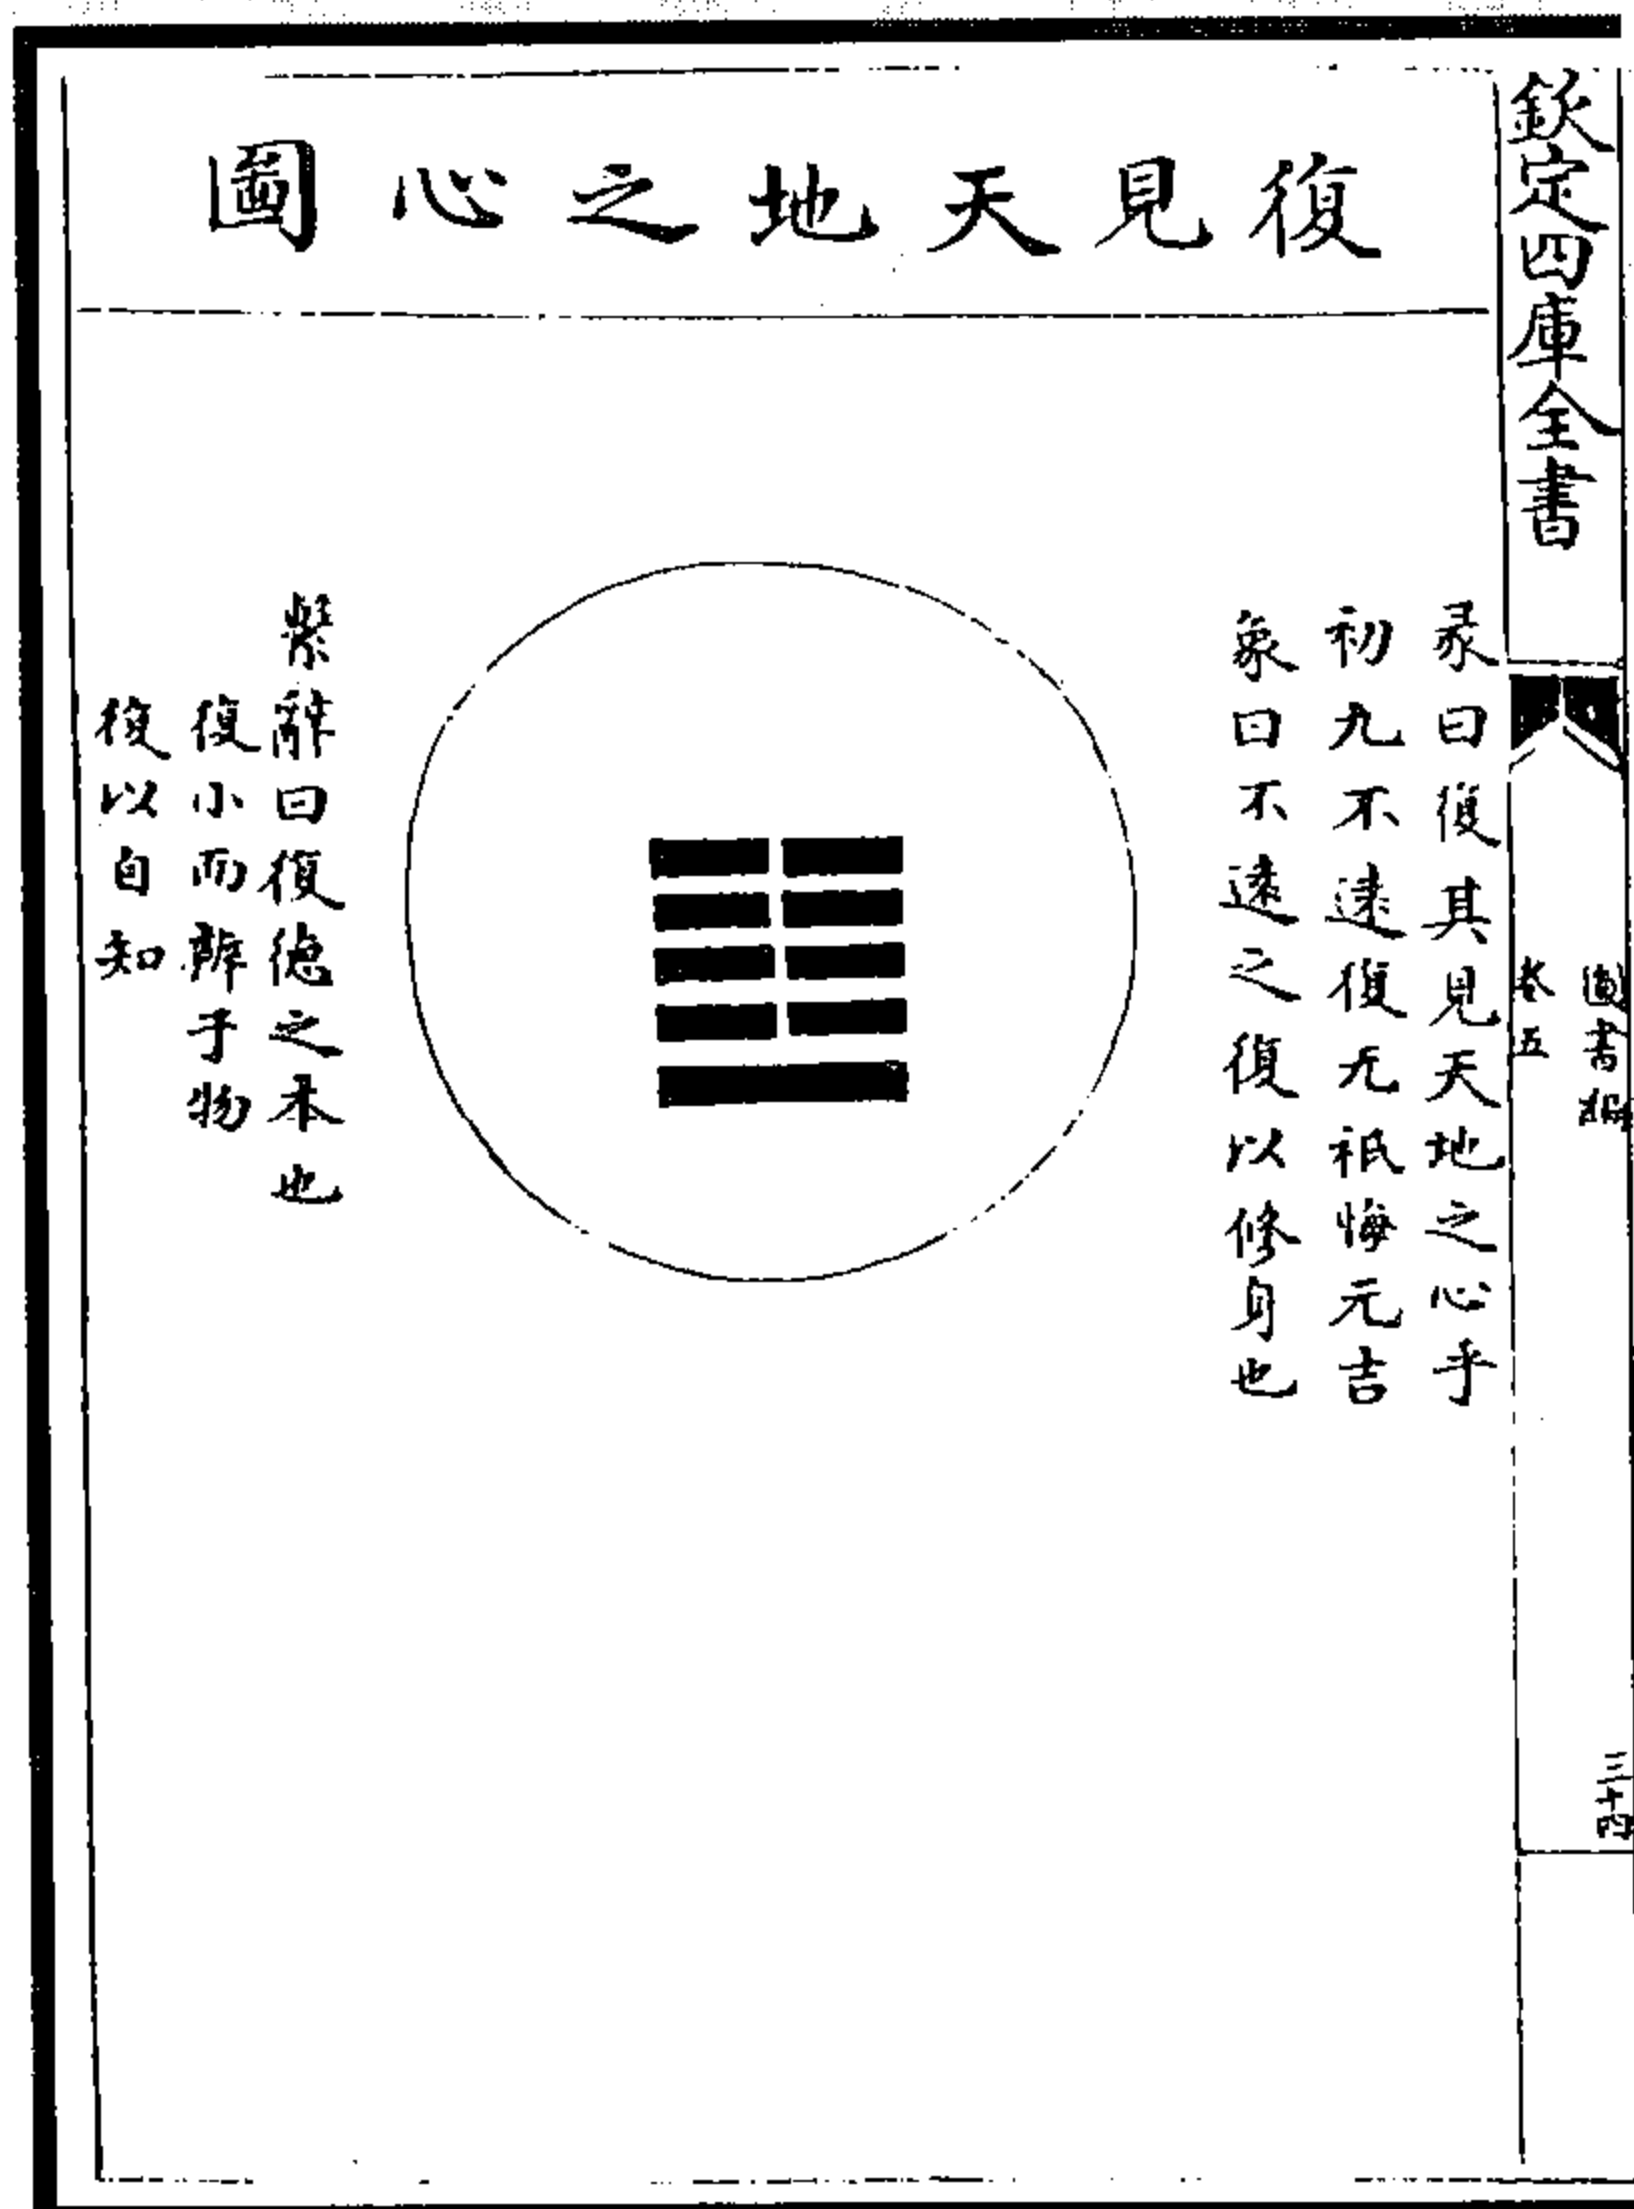 欽定四庫全書
圖書編
卷五
三十四
復見天地之心圖
彖曰復其見天地之心乎
初九不遠復无祇悔元吉
象曰不遠之復以修身也
繫辭曰復德之本也
復小而辨于物
復以自知